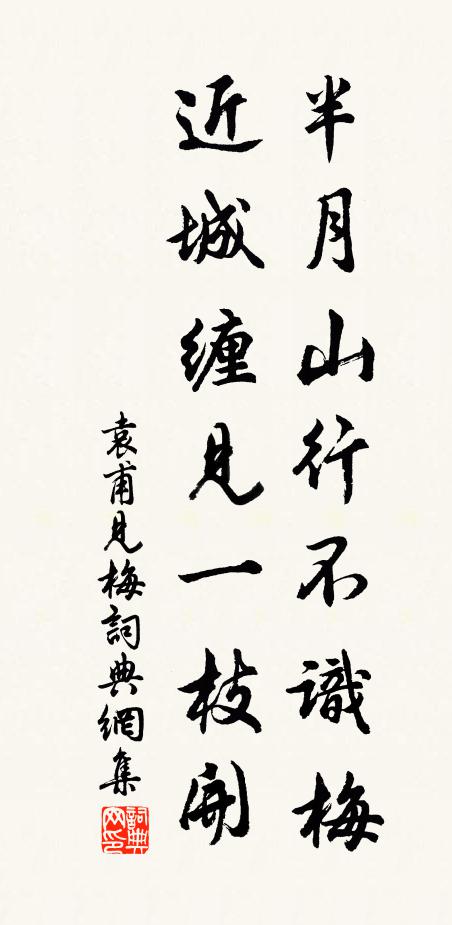 半月山行不識梅
近城纏見一枝開
袁甫見梅詞典網集
詞典网印